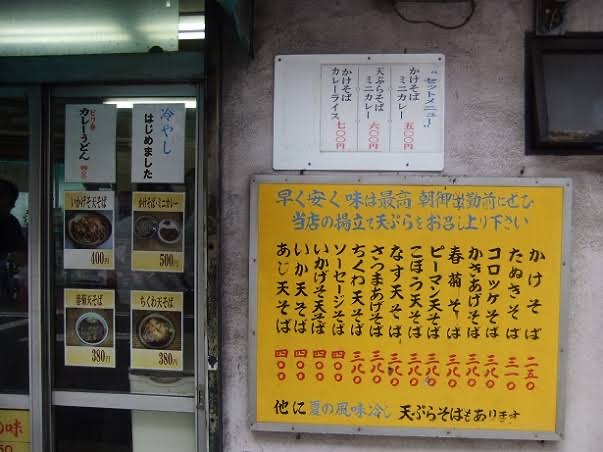 “セットメニュー”
かけそば
ミニカレー 五〇〇円
天ぷらそば
ミニカレー 六〇〇円
かけそば
カレーライス 七〇〇円
冷やし
はじめました
ピリ辛
カレーうどん
いかげそ天そば
400円
かけそば・ミニカレー
500円
春菊天そば
380円
ちくわ天そば
380円
早く安く味は最高 朝御出勤前にぜひ
当店の揚立て天ぷらをお召し上り下さい
かけそば 二五〇
たぬきそば 三一〇
コロッケそば 三八〇
かきあげそば 三八〇
春菊そば 三八〇
ピーマン天そば 三八〇
ごぼう天そば 三八〇
なす天そば 三八〇
さつまあげそば 三八〇
ちくわ天そば 三八〇
ソーセージそば 四〇〇
いかげそ天そば 四〇〇
いか天そば 四〇〇
あじ天そば 四〇〇
他に夏の風味冷し天ぷらそばもあります